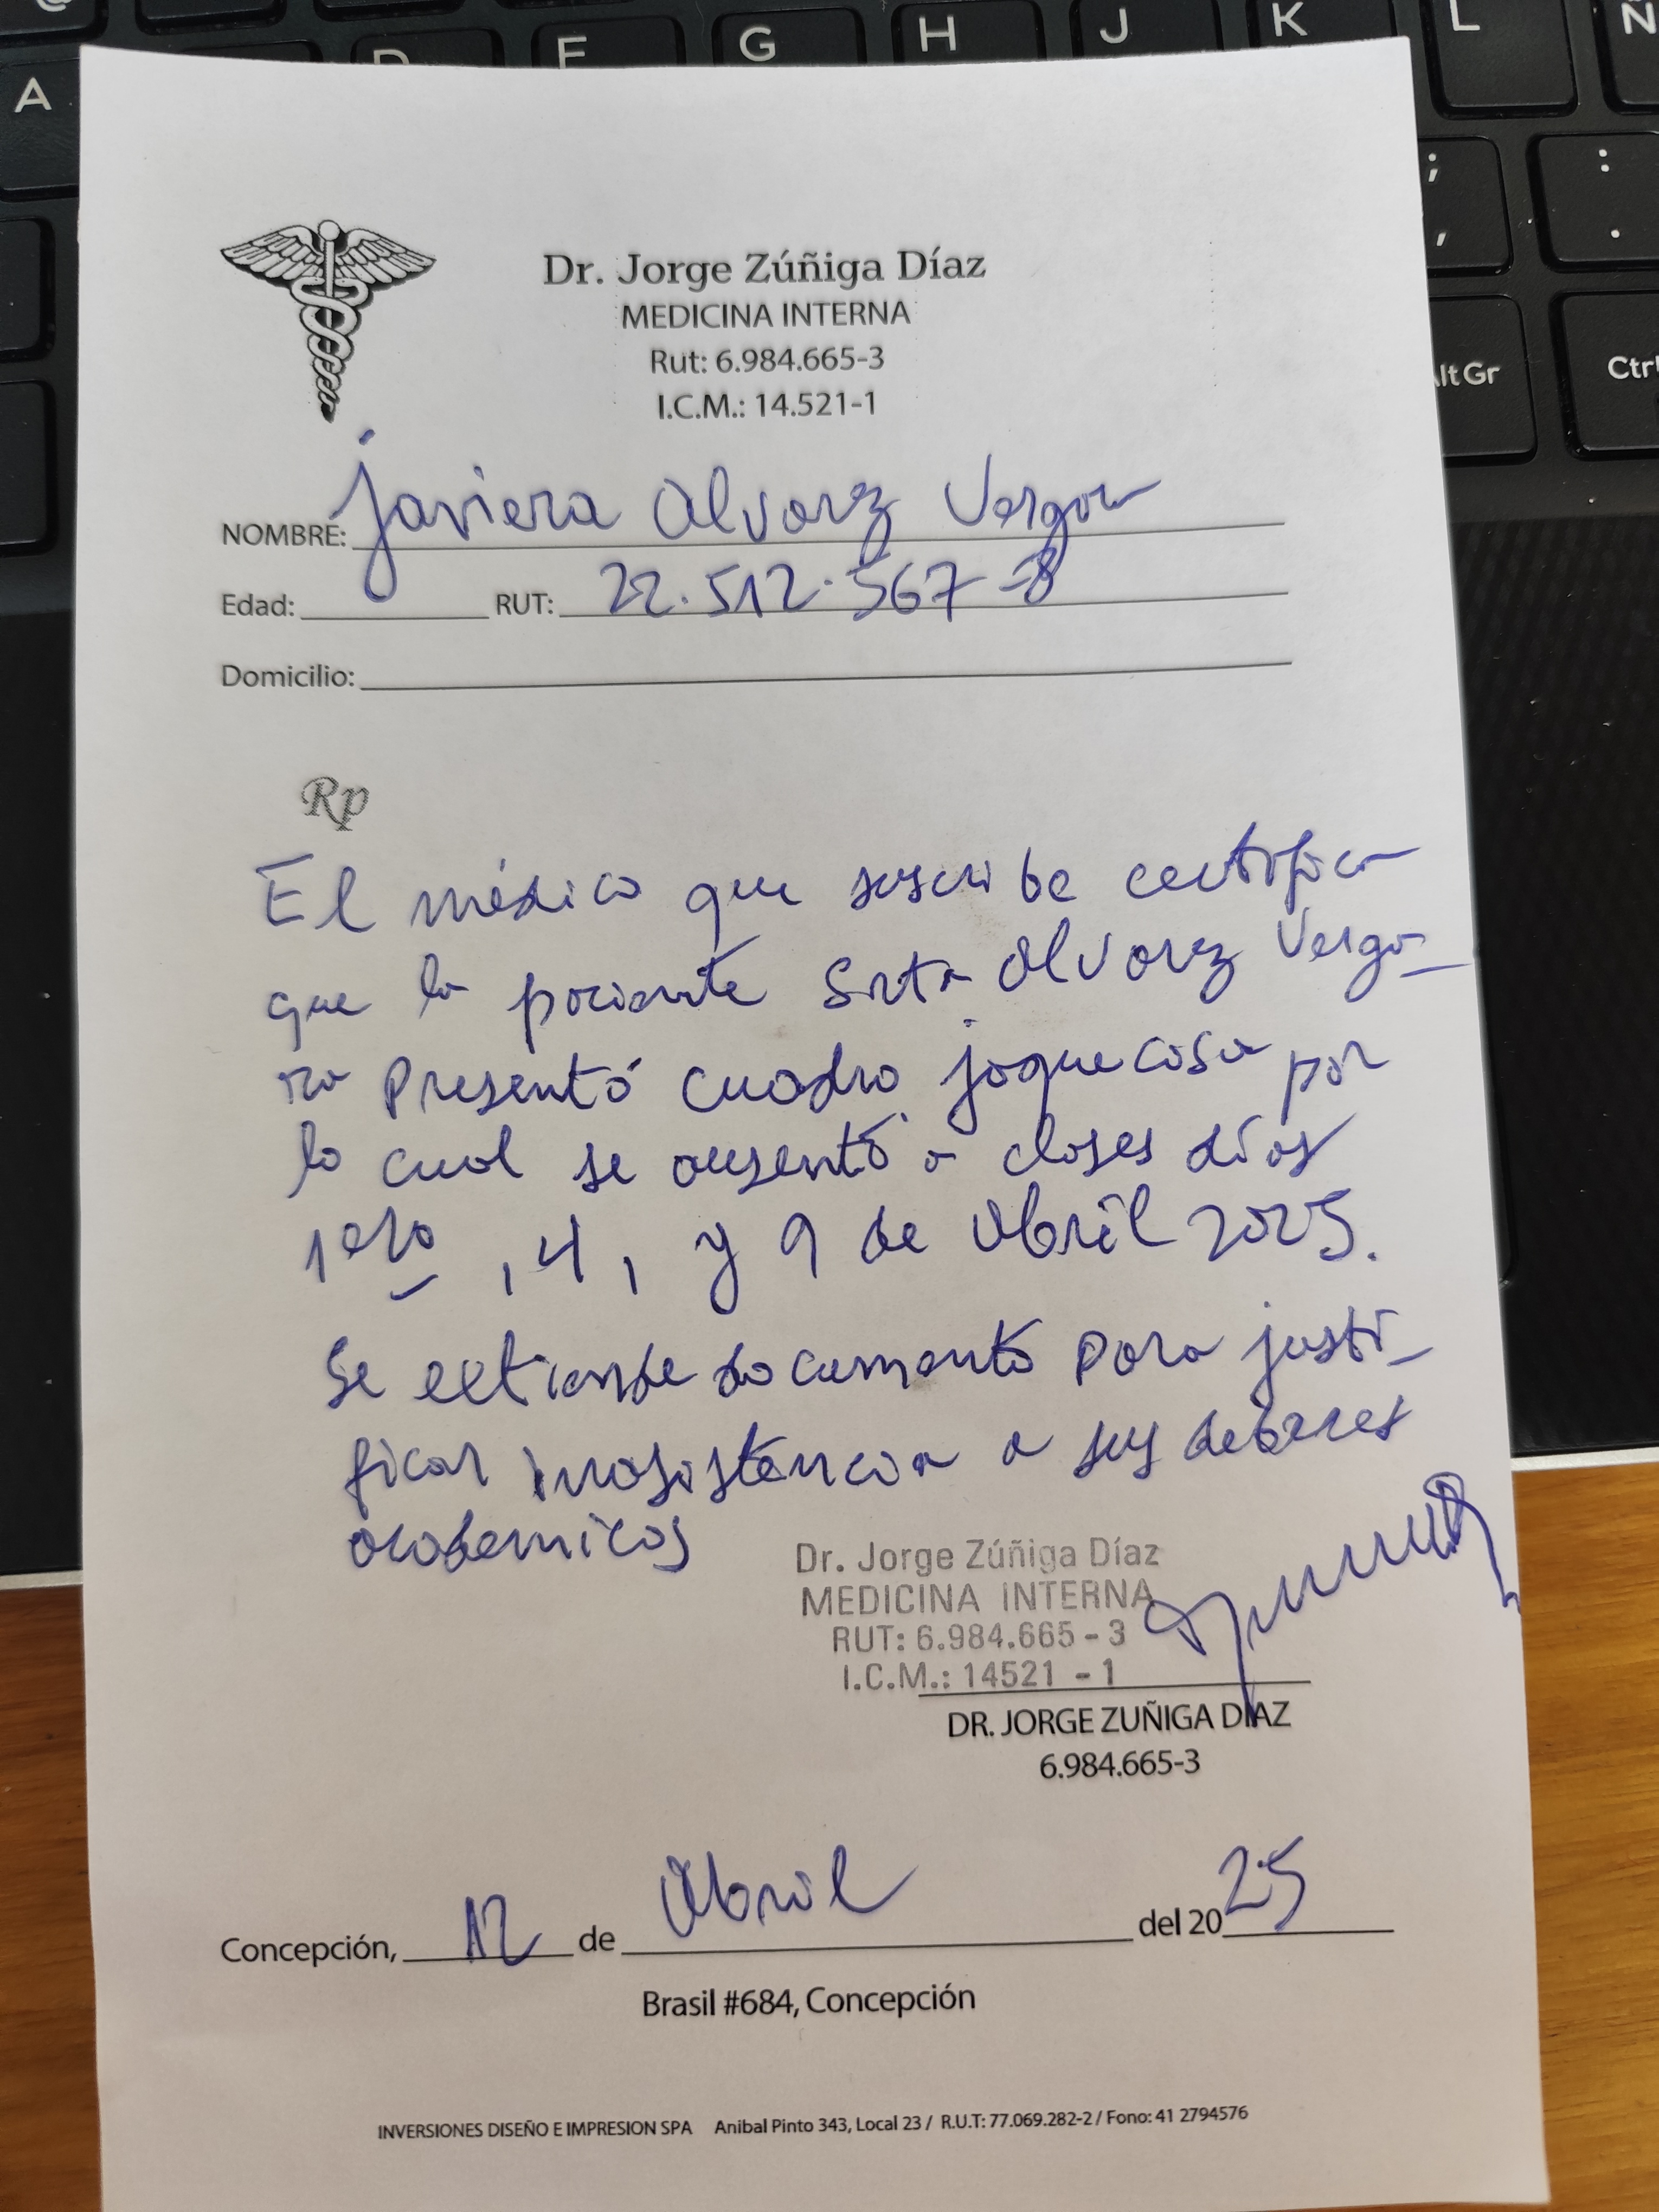 A D F G H J K L Ñ
; ,
: .
AltGr
Ctrl
Dr. Jorge Zúñiga Díaz
MEDICINA INTERNA
Rut: 6.984.665-3
I.C.M.: 14.521-1
NOMBRE: Javiera Alvarez Vergara
Edad: RUT: 22.512.567-8
Domicilio:
Rp
El médico que suscribe certifica
que la paciente Srta Alvarez Verga-
ra Presentó cuadro jaquecosa por
lo cual se ausentó a clases días
1ero, 4, y 9 de Abril 2025.
Se extiende documento para justi-
ficar inasistencia a sus deberes
academicos
Dr. Jorge Zúñiga Díaz
MEDICINA INTERNA
RUT: 6.984.665 - 3
I.C.M.: 14521 - 1
DR. JORGE ZUÑIGA DIAZ
6.984.665-3
Concepción, 12 de Abril del 2025
Brasil #684, Concepción
INVERSIONES DISEÑO E IMPRESION SPA Anibal Pinto 343, Local 23 / R.U.T: 77.069.282-2 / Fono: 41 2794576